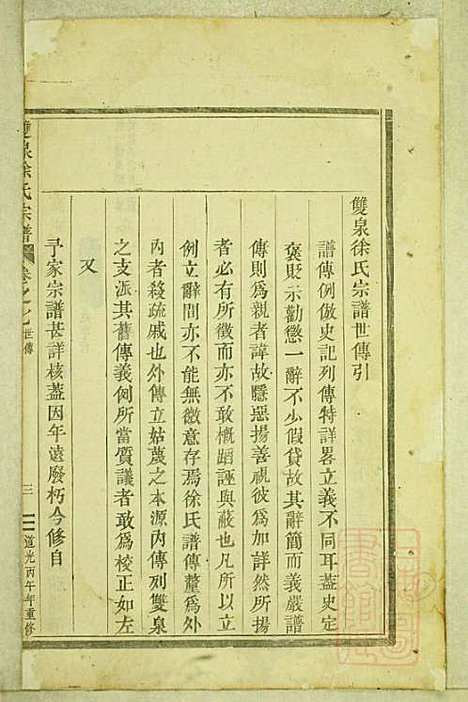 雙泉徐氏宗譜世傳引
譜傳例倣史記列傳特詳畧立義不同耳蓋史定
褒貶示勸懲一辭不少假貸故其辭簡而義嚴譜
傳則爲親者諱故隱惡揚善視彼爲加詳然所揚
者必有所徵而亦不敢概蹈誣與蔽也凡所以立
例立辭間亦不能無微意存焉徐氏譜傳釐爲外
內者殺疏戚也外傳立姑蔑之本源內傳列雙泉
之支派其舊傳義例所當質議者敢爲校正如左
又
予家宗譜甚詳核蓋因年遠廢朽今修自
雙泉徐氏宗譜
卷之
世傳
三
道光丙午年重修